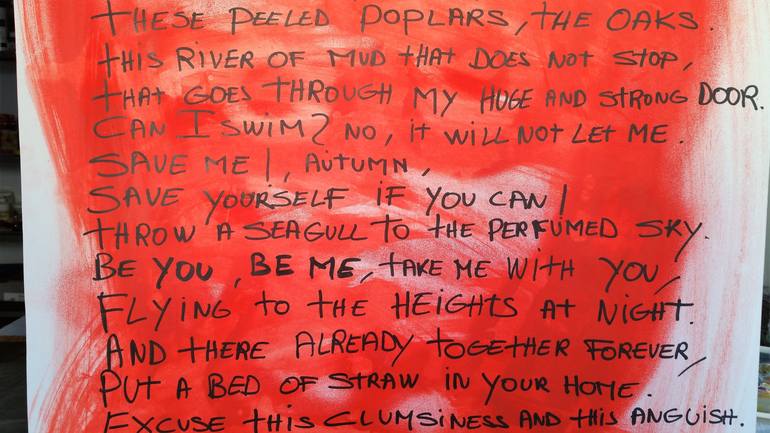 THESE PEELED POPLARS, THE OAKS.
THIS RIVER OF MUD THAT DOES NOT STOP,
THAT GOES THROUGH MY HUGE AND STRONG DOOR.
CAN I SWIM? NO, IT WILL NOT LET ME.
SAVE ME!, AUTUMN,
SAVE YOURSELF IF YOU CAN!
THROW A SEAGULL TO THE PERFUMED SKY.
BE YOU, BE ME, TAKE ME WITH YOU,
FLYING TO THE HEIGHTS AT NIGHT.
AND THERE ALREADY TOGETHER FOREVER,
PUT A BED OF STRAW IN YOUR HOME.
EXCUSE THIS CLUMSINESS AND THIS ANGUISH.